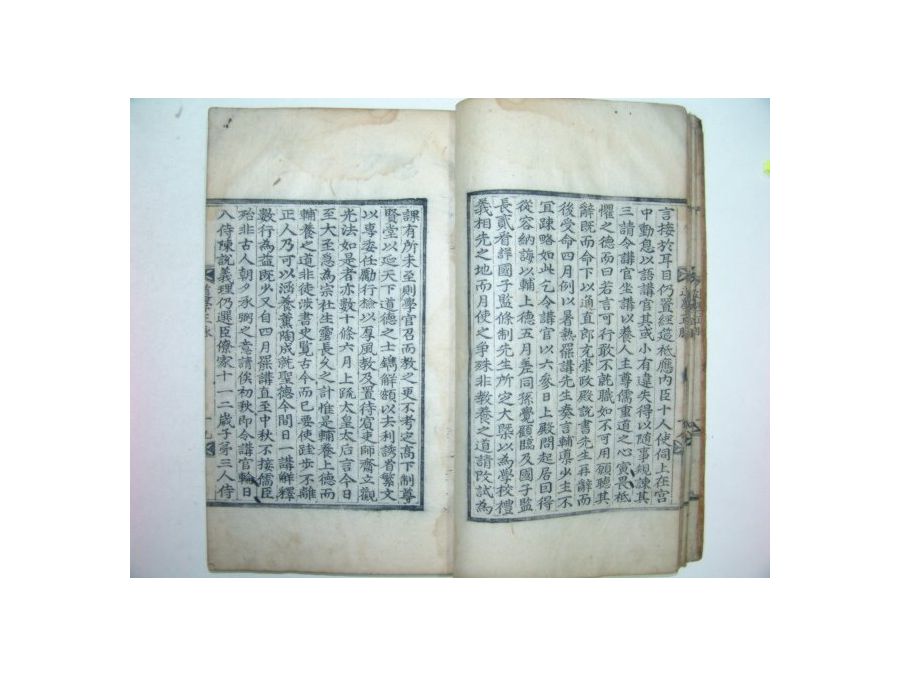 言接於耳目仍置經筵祗應內臣十人使伺上在宮
中動息以語講官其或小有違失得以隨事規諫其
三請令講官坐講以養人主尊儒重道之心寅畏祗
懼之德而曰若言可行敢不就職如不可用願聽其
辭既而命下以通直郎充崇政殿說書先生再辭而
後受命四月例以暑熱罷講先生奏言輔導少主不
宜疎略如此乞令講官以六參日上殿問起居因得
從容納誨以輔上德五月差同孫覺顧臨及國子監
長貳看詳國子監條制先生所定大槩以為學校禮
義相先之地而月使之爭殊非教養之道請改試為
課有所未至則學官召而教之更不考定高下制尊
賢堂以延天下道德之士鐫解額以去利誘省繁文
以專委任勵行檢以厚風教及置待賓吏師齋立觀
光法如是者亦數十條六月上疏太皇太后言今日
至大至急為宗社生靈長久之計惟是輔養上德而
輔養之道非徒涉書史覽古今而已要使跬步不離
正人乃可以涵養薰陶成就聖德今間日一講解釋
數行為益既少又自四月罷講直至中秋不接儒臣
殆非古人朝夕承弼之意請俟初秋即令講官輪日
入侍陳說義理仍選臣僚家十一二歲子弟三人侍